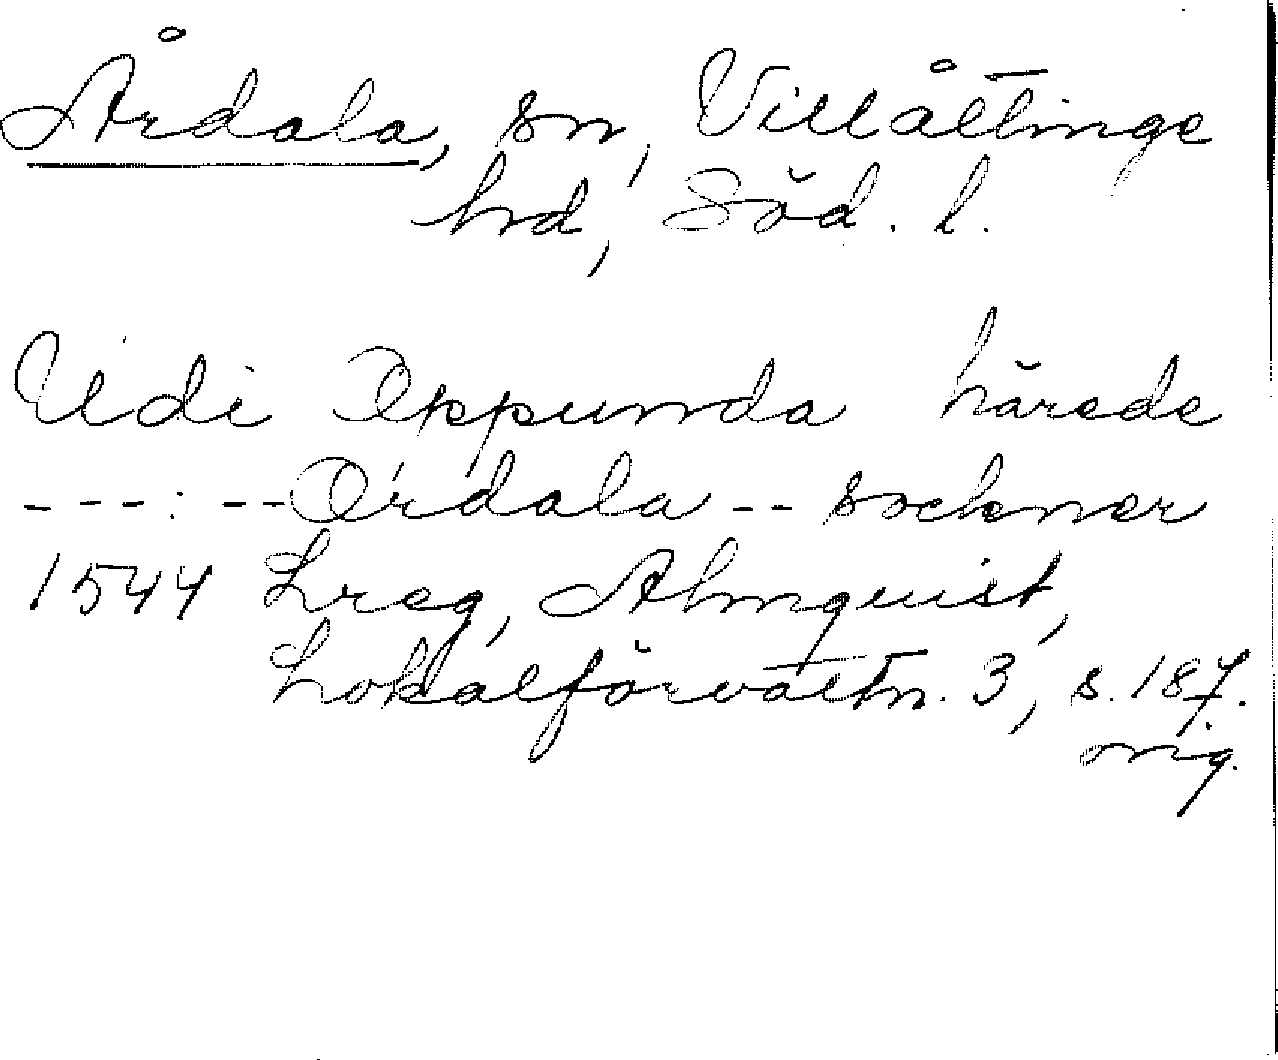 Årdala, sn, Villåttinge
hrd, Söd. l.
Udi Oppunda härede
---:--Ordala -- sockner
1544 Lreg, Almquist,
Lokalförvaltn. 3, s. 187.
orig.